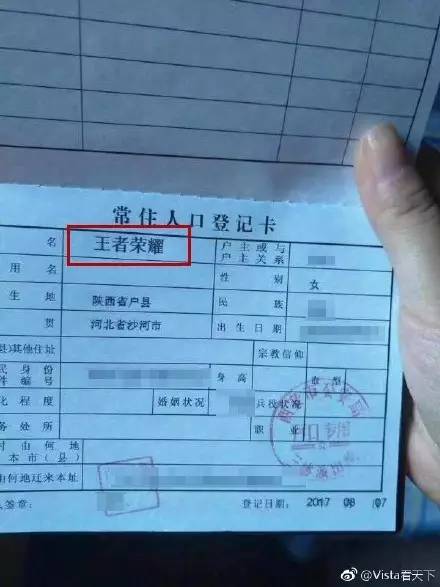 常住人口登记卡
名 王者荣耀 户主或与户主关系
用名 性别 女
生地 陕西省户县 民族
贯 河北省沙河市 出生日期
县)其他住址 宗教信仰
民身份件编号 身高 血型
化程度 婚姻状况 兵役状况
务处所 职业
时由何地本市(县)
由何地迁来本址
人签章: 登记日期: 2017 08 07
@Vista看天下